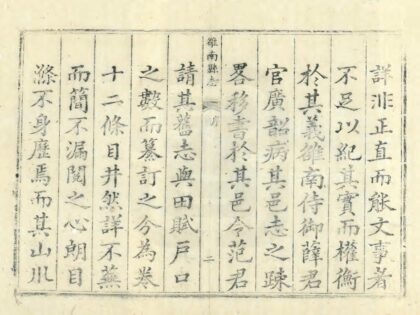 詳非正直而能文事者
不足以紀其實而權衡
於其義雒南侍御薛君
官廣韶病其邑志之踈
畧移書於其邑令范君
雒南縣志
二
請其舊志與田賦戶口
之數而纂訂之分為卷
十二條目井然詳不蕪
而簡不漏閱之心朗目
滌不身歷焉而其山川